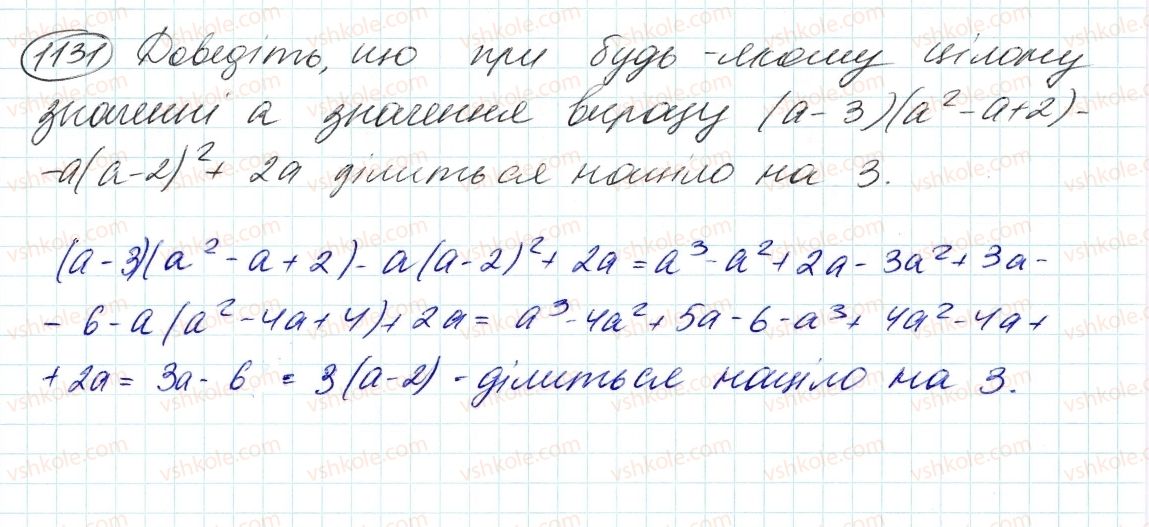 1131 Доведіть, що при будь-якому цілому
значенні a значення виразу (a-3)(a²-a+2)-
-a(a-2)²+ 2a ділиться націло на 3.
(a-3)(a²-a+2)-a(a-2)²+2a=a³-a²+2a-3a²+3a-
-6-a(a²-4a+4)+2a= a³-4a²+5a-6-a³+4a²-4a+
+2a= 3a-6 = 3(a-2) - ділиться націло на 3.